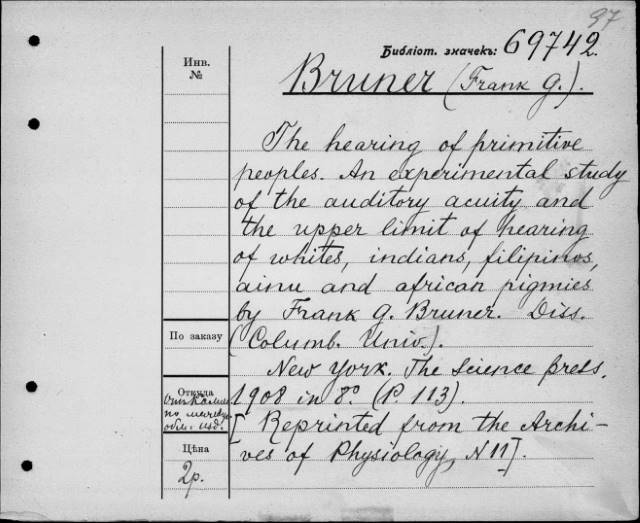 97
Библіот. значекъ: 69742.
Инв.
№
Bruner (Frank G.).
The hearing of primitive
peoples. An experimental study
of the auditory acuity and
the upper limit of hearing
of whites, indians, filipinos,
ainu and african pigmies
by Frank G. Bruner. Diss.
По заказу
(Columb. Univ.).
New York. The Science press.
Откуда
1908 in 8º (P. 113).
по
[Reprinted from the Archi-
Цѣна
ves of Physiology, N 11].
2р.